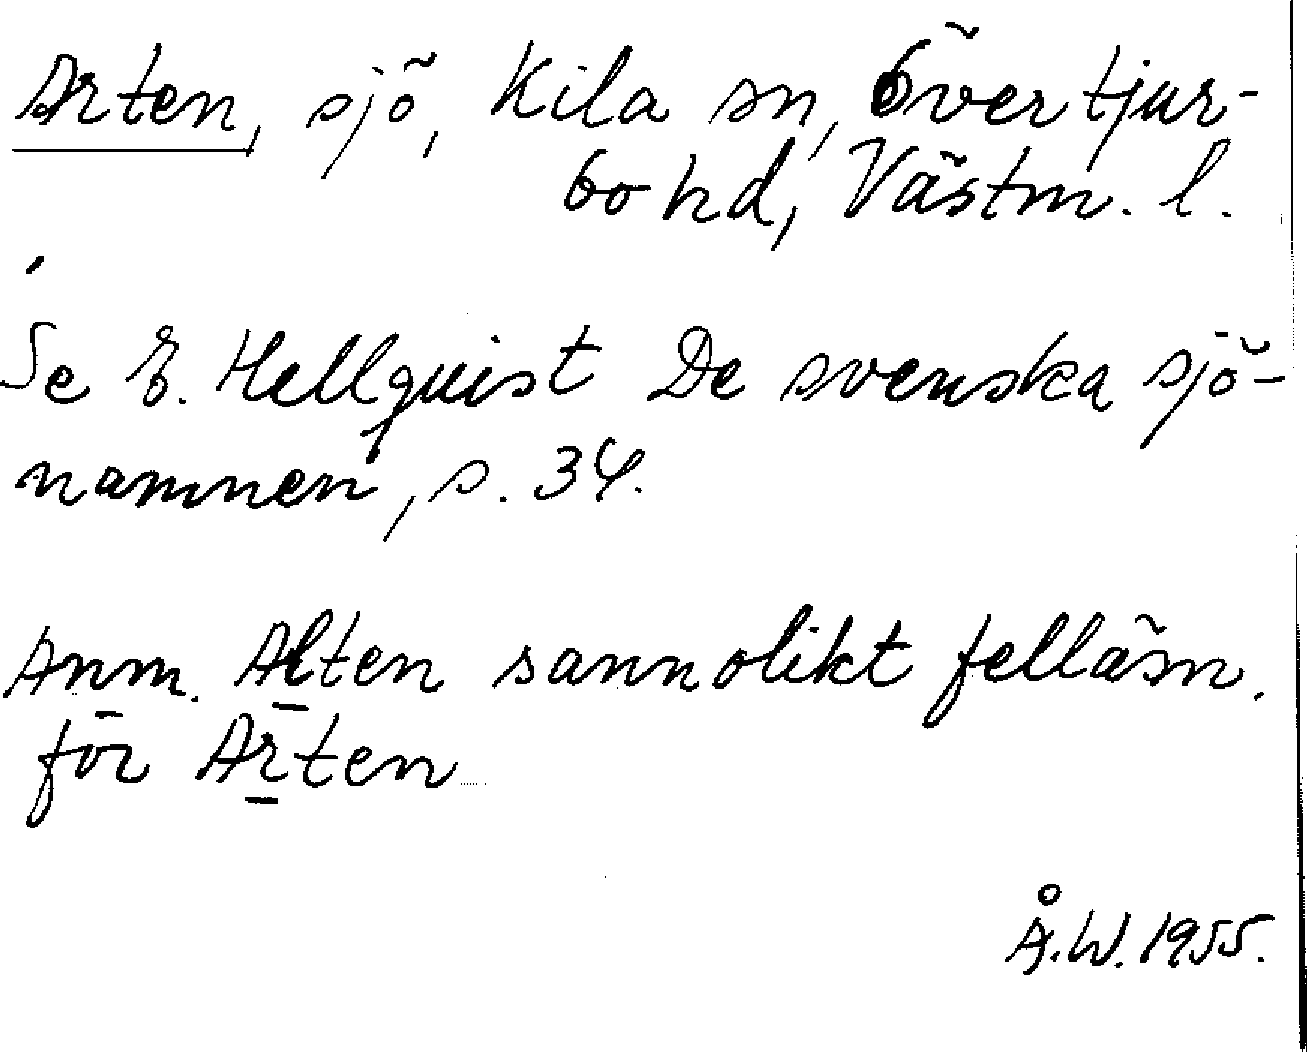 Arten, sjö, Kila sn, Övertjur-
bo hd, Västm. l.
Se E. Hellquist De svenska sjö-
namnen, s. 34.
Anm. Alten sannolikt felläsn.
för Arten
Å.W. 1955.